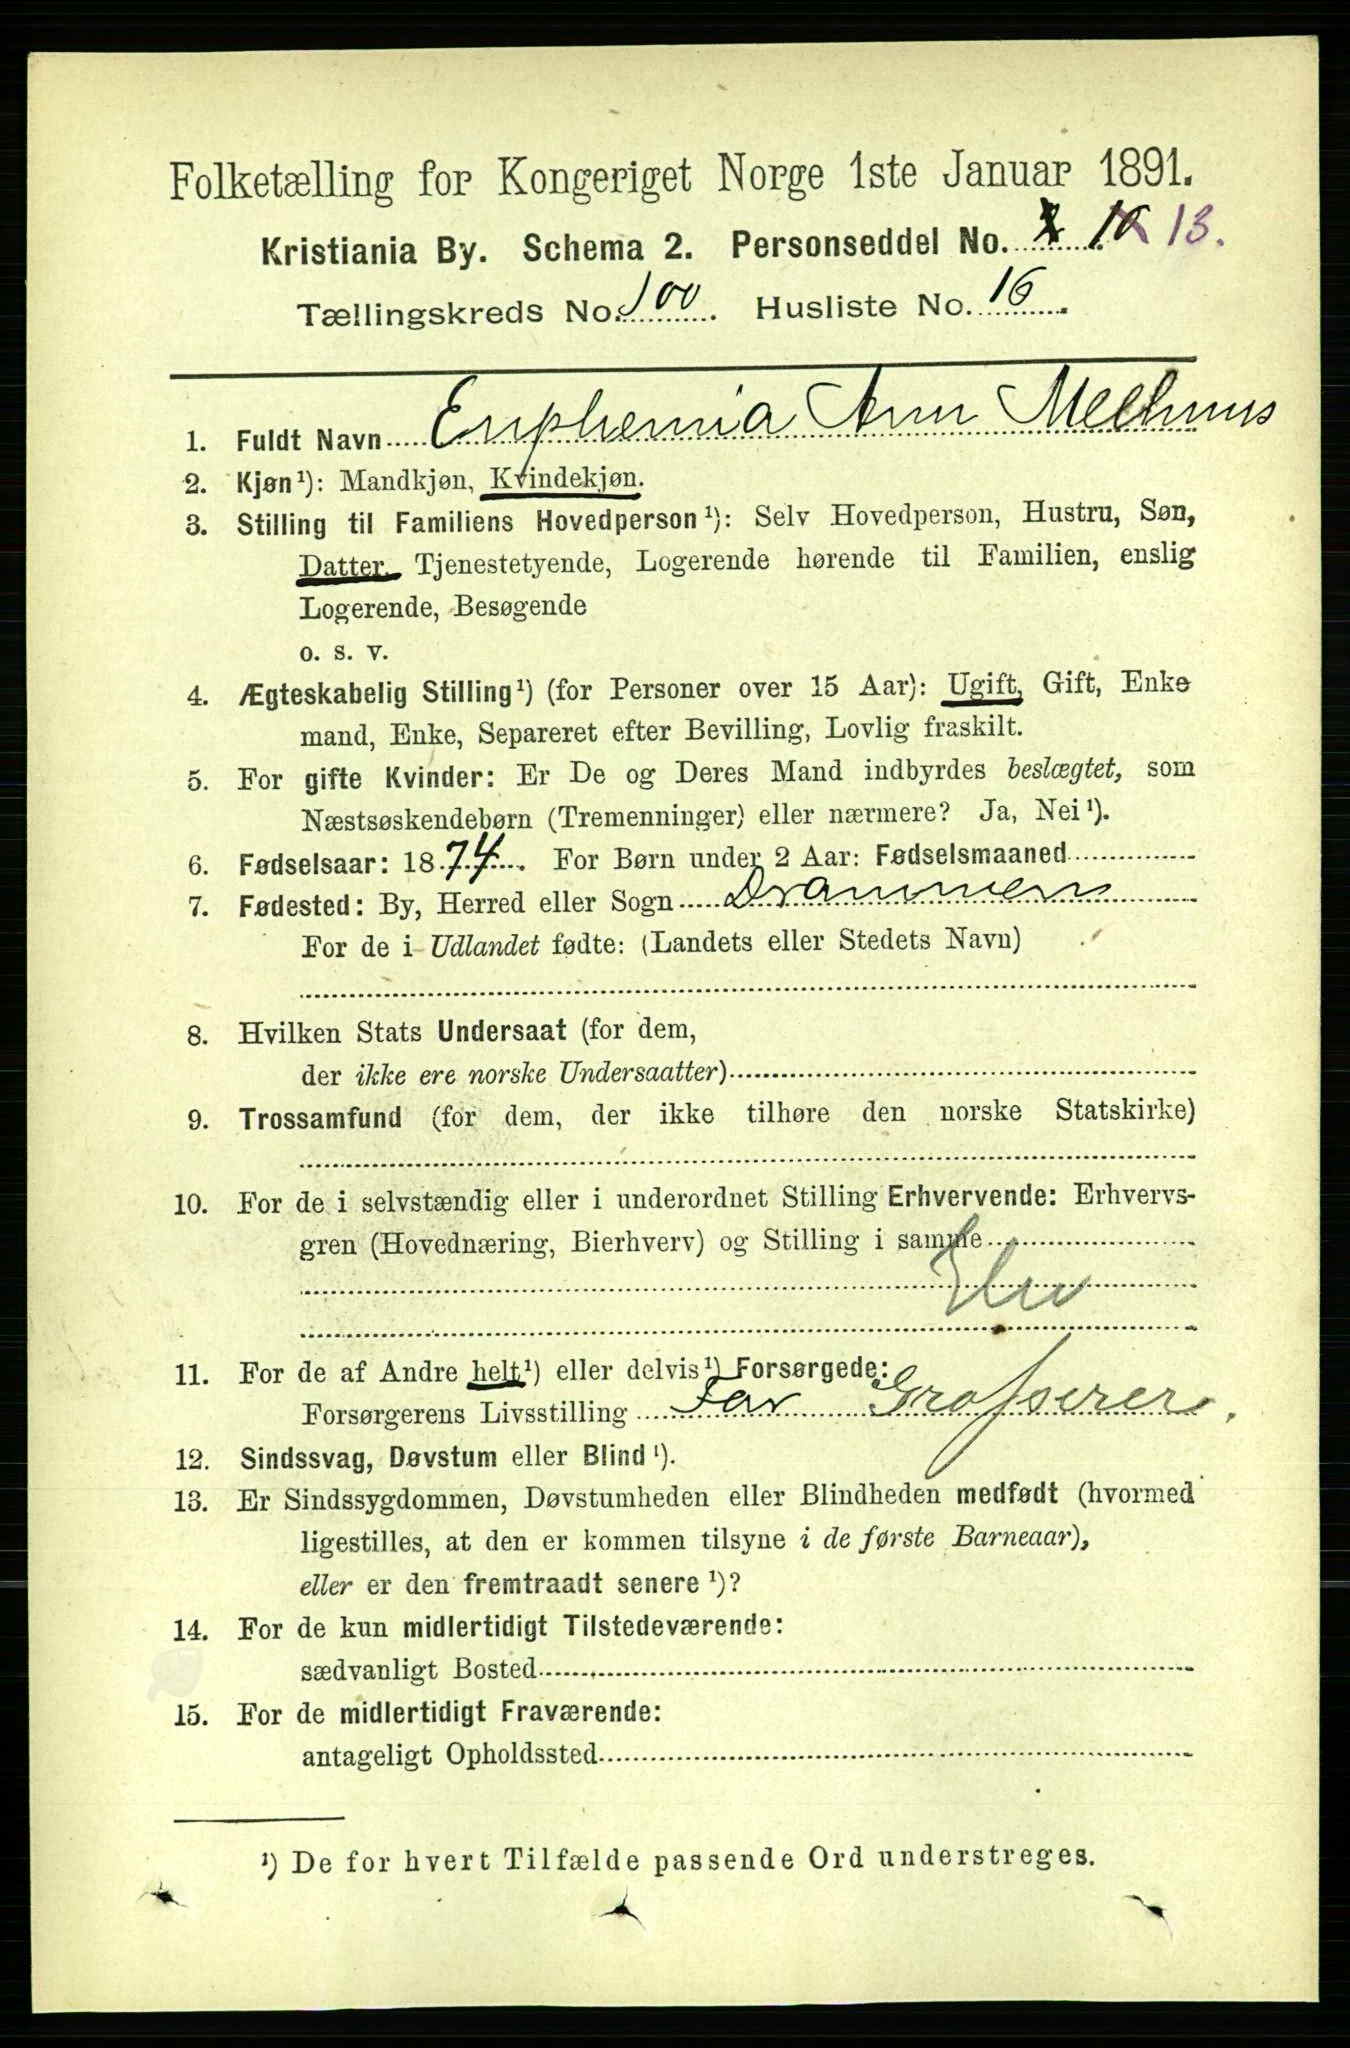 Folketælling for Kongeriget Norge 1ste Januar 1891.
Kristiania By. Schema 2. Personseddel No. 10 13.
Tællingskreds No. 100. Husliste No. 16.
1. Fuldt Navn Euphemia Ann Melhuus
2. Kjøn¹): Mandkjøn, Kvindekjøn.
3. Stilling til Familiens Hovedperson¹): Selv Hovedperson, Hustru, Søn,
Datter, Tjenestetyende, Logerende hørende til Familien, enslig
Logerende, Besøgende
o. s. v.
4. Ægteskabelig Stilling¹) (for Personer over 15 Aar): Ugift, Gift, Enke
mand, Enke, Separeret efter Bevilling, Lovlig fraskilt.
5. For gifte Kvinder: Er De og Deres Mand indbyrdes beslægtet, som
Næstsøskendebørn (Tremenninger) eller nærmere? Ja, Nei¹).
6. Fødselsaar: 1874. For Børn under 2 Aar: Fødselsmaaned
7. Fødested: By, Herred eller Sogn Drammen
For de i Udlandet fødte: (Landets eller Stedets Navn)
8. Hvilken Stats Undersaat (for dem,
der ikke ere norske Undersaatter)
9. Trossamfund (for dem, der ikke tilhøre den norske Statskirke)
10. For de i selvstændig eller i underordnet Stilling Erhvervende: Erhvervs-
gren (Hovednæring, Bierhverv) og Stilling i samme
11. For de af Andre helt¹) eller delvis¹) Forsørgede:
Forsørgerens Livsstilling Far Grosserer.
12. Sindssvag, Døvstum eller Blind¹).
13. Er Sindssygdommen, Døvstumheden eller Blindheden medfødt (hvormed
ligestilles, at den er kommen tilsyne i de første Barneaar),
eller er den fremtraadt senere¹)?
14. For de kun midlertidigt Tilstedeværende:
sædvanligt Bosted
15. For de midlertidigt Fraværende:
antageligt Opholdssted
¹) De for hvert Tilfælde passende Ord understreges.